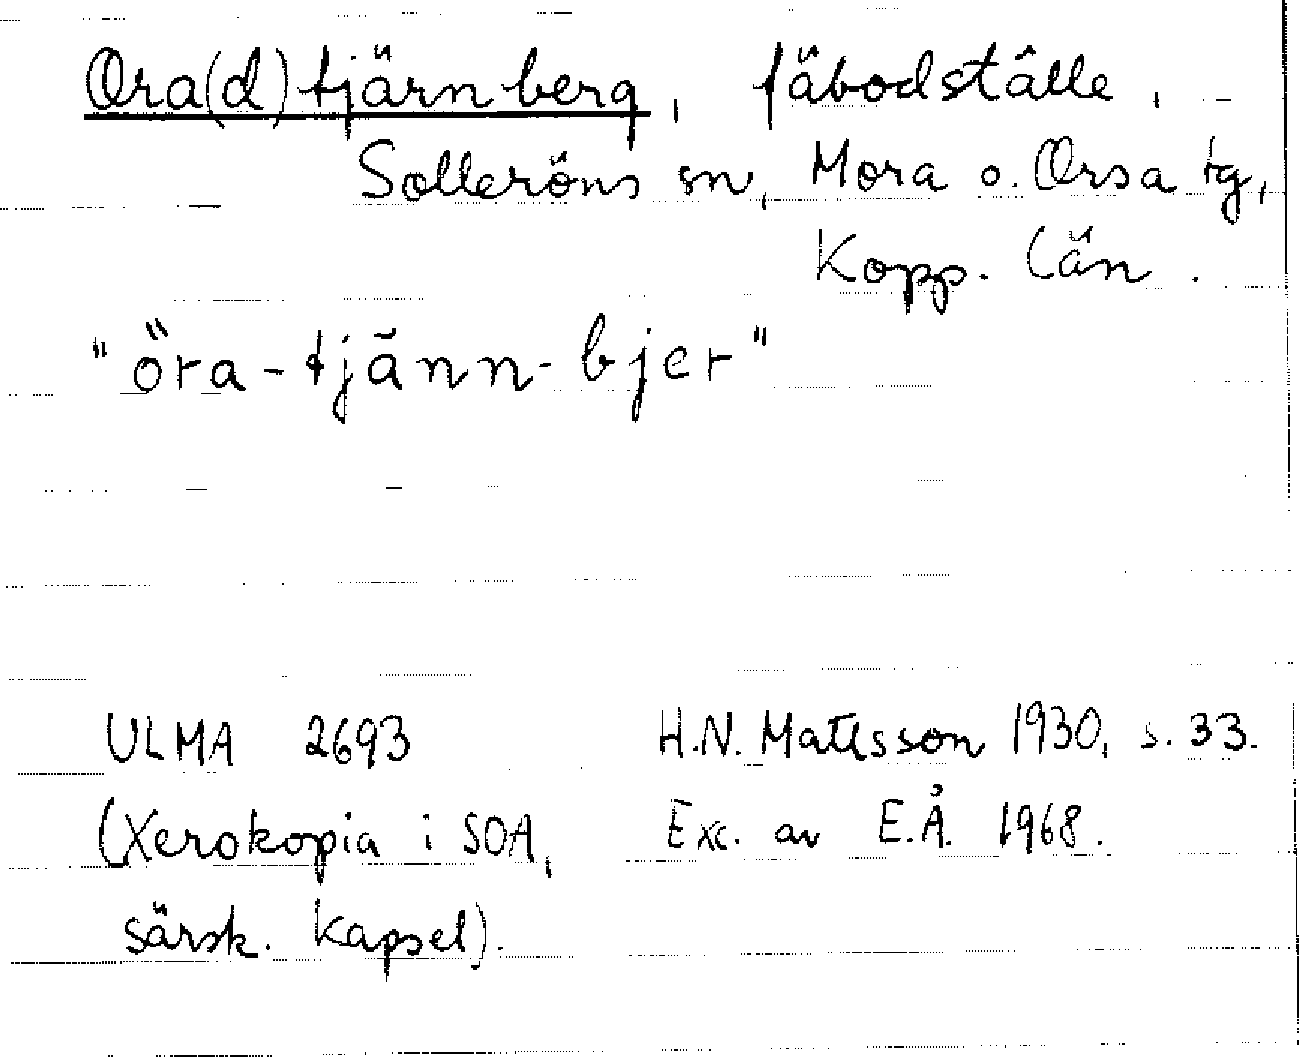 Ora(d)tjärnberg, fäbodställe,
Solleröns sn, Mora o. Orsa tg,
Kopp. län.
"öra-tjänn-bjer"
ULMA 2693 H.N. Mattsson 1930, s. 33.
(Xerokopia i SOA, Exc. av E.Å. 1968.
särsk. kapsel).